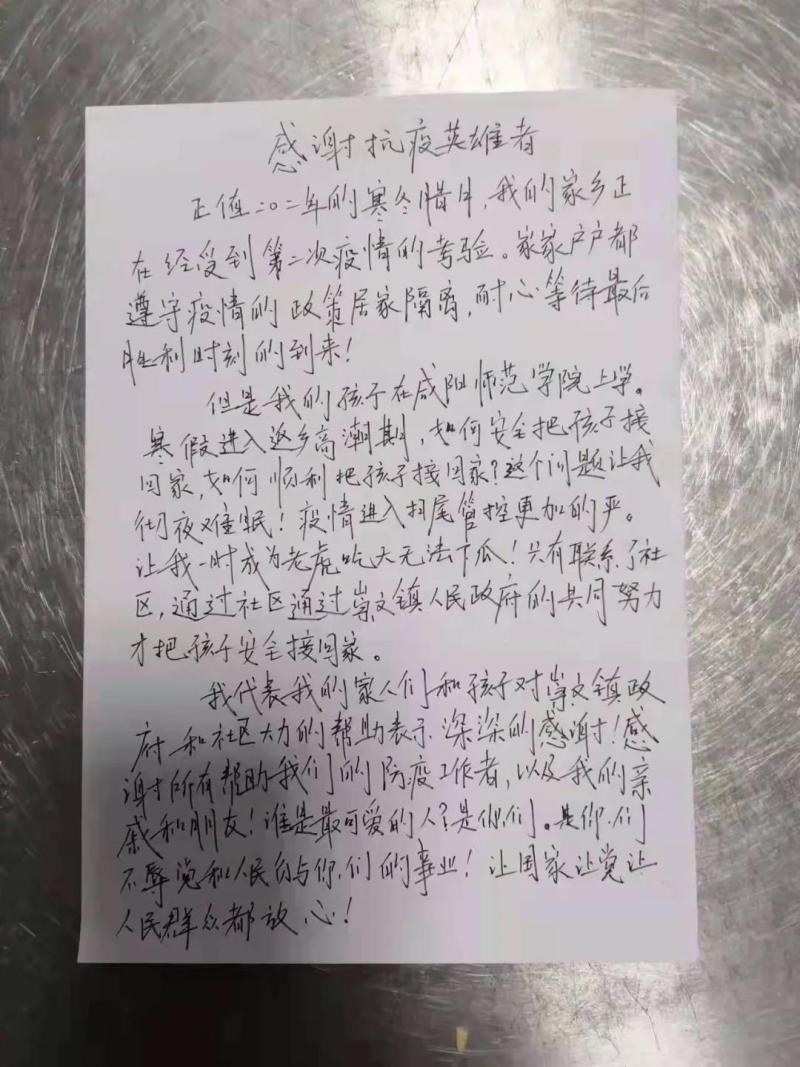 感谢抗疫英雄者
正值二〇二年的寒冬腊月,我的家乡正
在经受到第二次疫情的考验。家家户户都
遵守疫情的政策居家隔离,耐心等待最后
胜利时刻的到来!
但是我的孩子在咸阳师范学院上学。
寒假进入返乡高潮期,如何安全把孩子接
回家,如何顺利把孩子接回家?这个问题让我
彻夜难眠!疫情进入扫尾管控更加的严。
让我一时成为老虎吃天无法下爪!只有联系了社
区,通过社区通过崇文镇人民政府的共同努力
才把孩子安全接回家。
我代表我的家人们和孩子对崇文镇政
府和社区大力的帮助表示深深的感谢!感
谢所有帮助我们的防疫工作者,以及我的亲
戚和朋友!谁是最可爱的人?是你们。是你们
不辱党和人民给与你们的事业!让国家让党让
人民群众都放心!